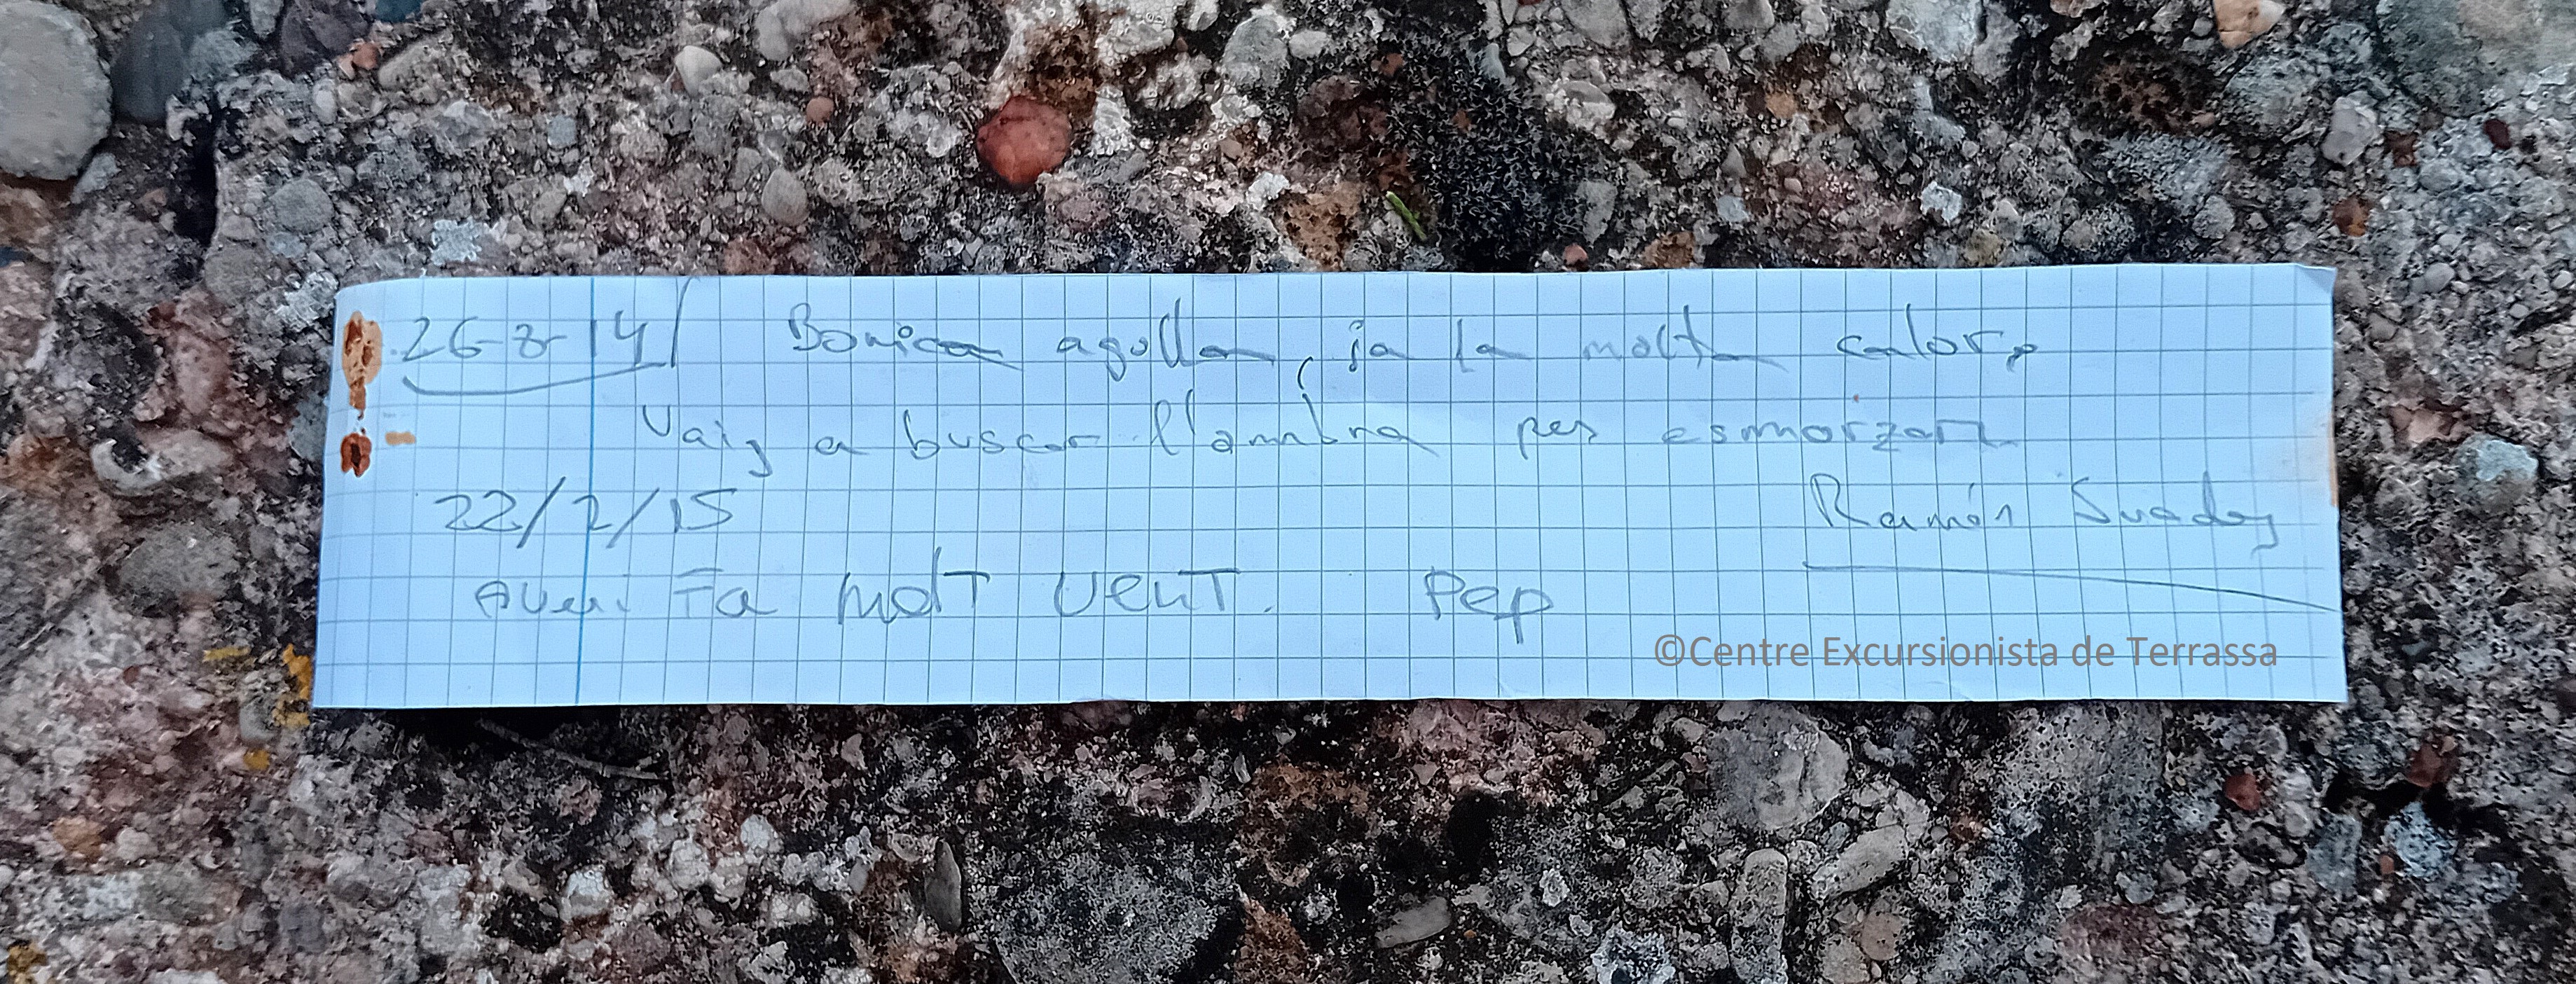 26-8-14/ Bonica agulla, ja fa molta calor,
Vaig a buscar l'ombra per esmorzar
22/2/15 Ramón
Avui Fa molT venT. Pep
©Centre Excursionista de Terrassa